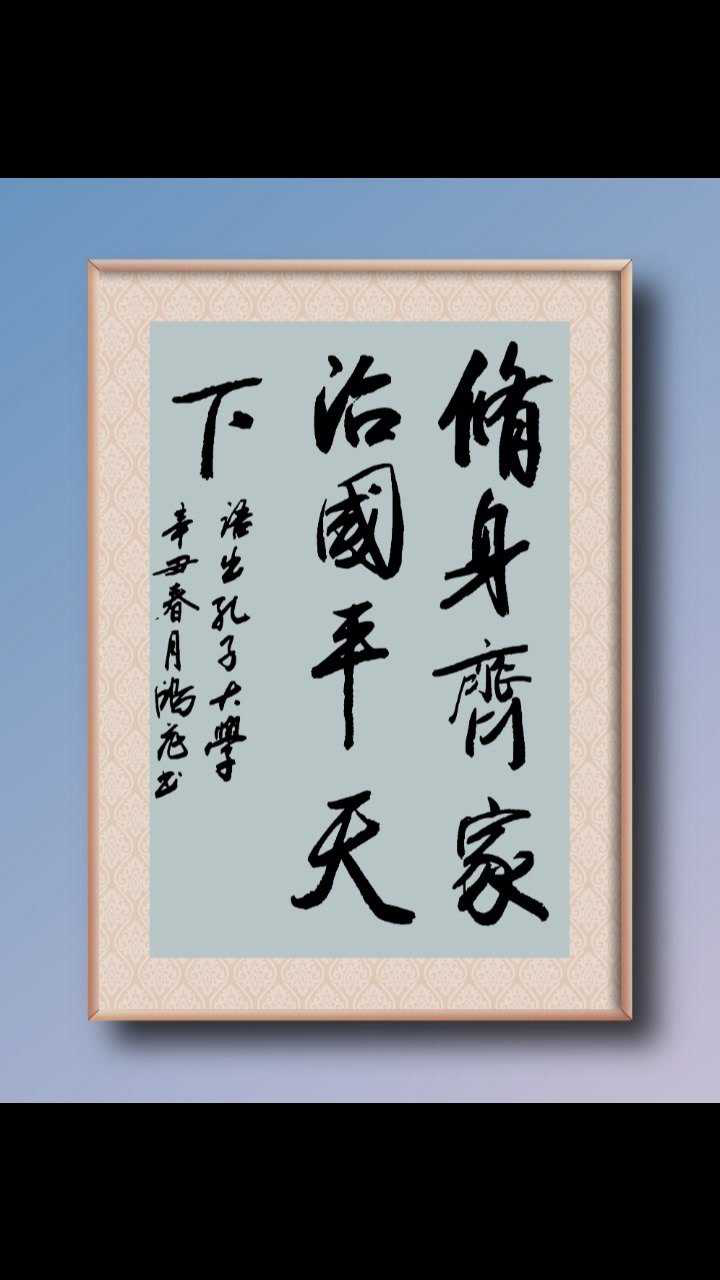 脩身齊家
治國平天
下
语出孔子大學
辛丑春月鴻彦书